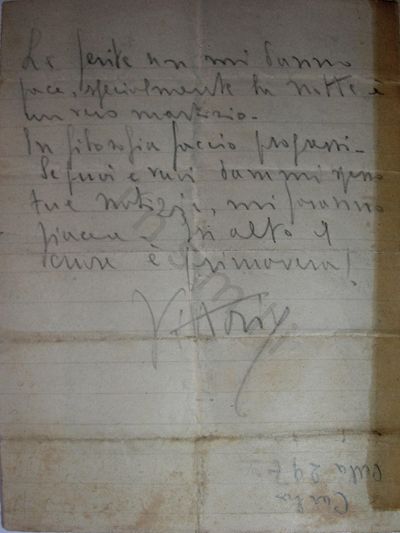 Le ferite non mi danno
pace, specialmente la notte è
un vero martirio.
In filosofia faccio progressi -
Se puoi e vuoi dammi spesso
tue notizie, mi faranno
piacere - In alto il
cuore è primavera!
Vittorio
Carlo